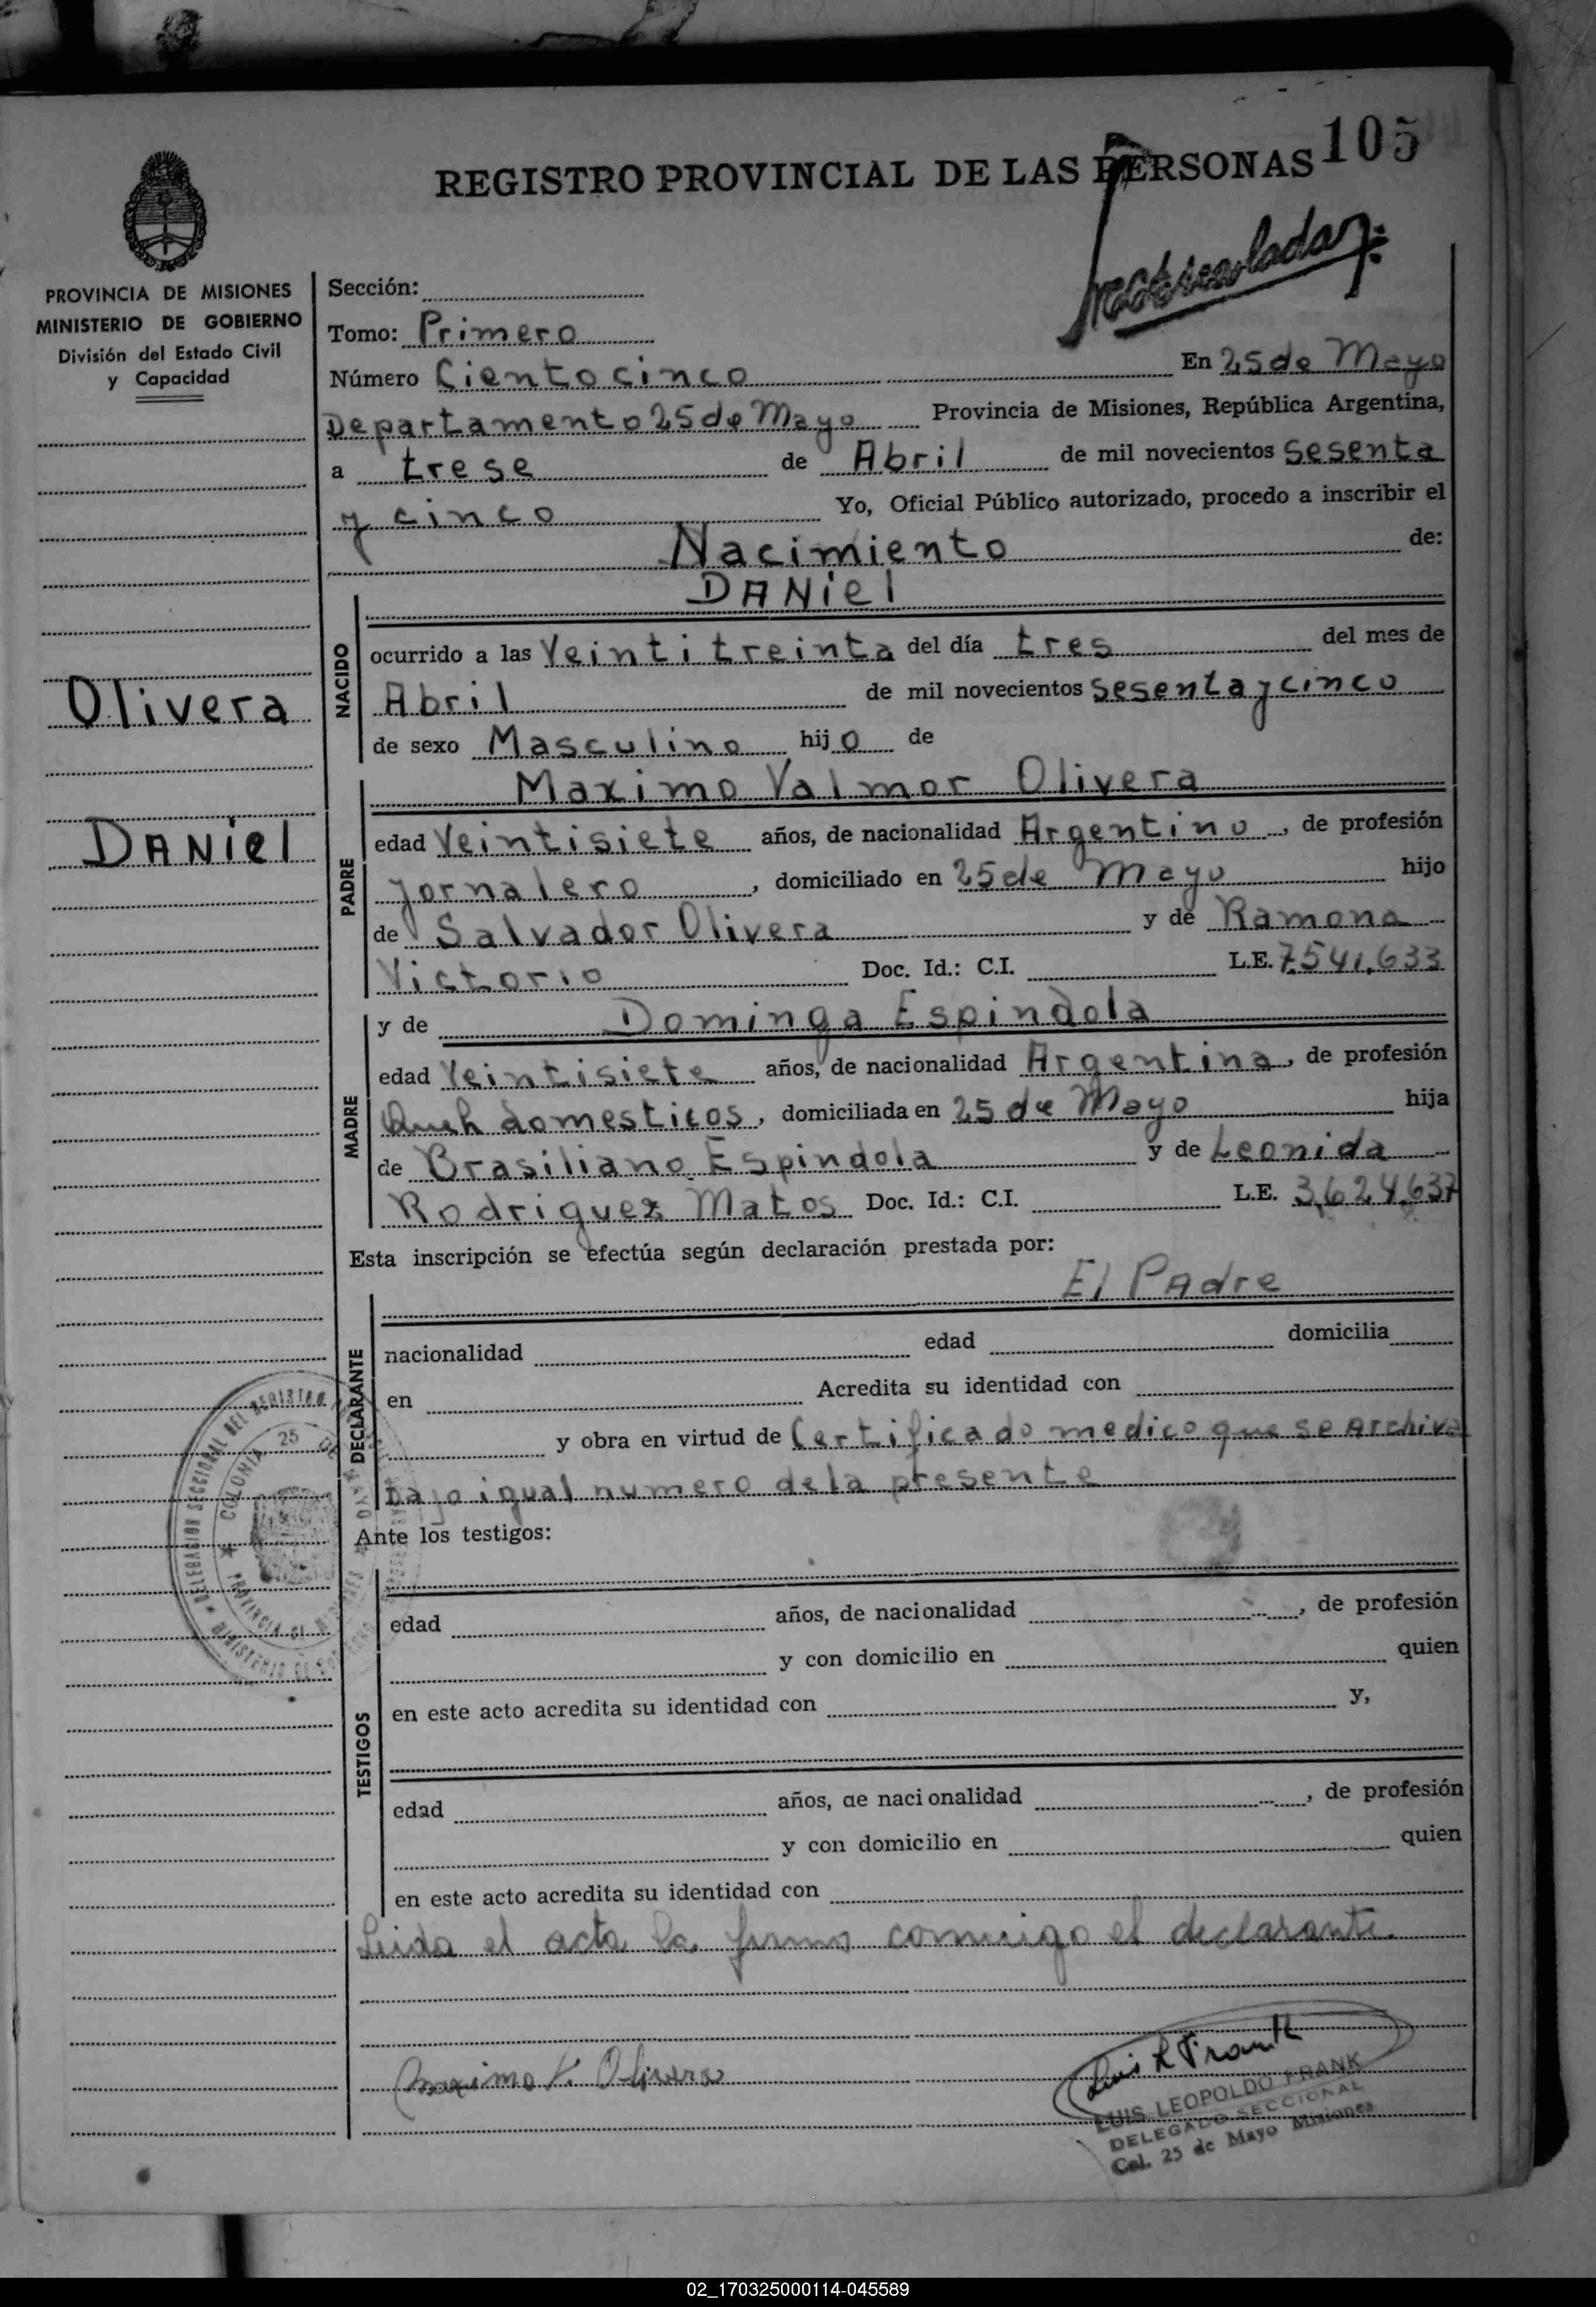 REGISTRO PROVINCIAL DE LAS PERSONAS 105
PROVINCIA DE MISIONES
MINISTERIO DE GOBIERNO
División del Estado Civil
y Capacidad
Olivera
DANiel
Sección:
Tomo: Primero
Número Ciento cinco En 25 de Mayo
Departamento 25 de Mayo Provincia de Misiones, República Argentina,
a trese de Abril de mil novecientos sesenta
y cinco Yo, Oficial Público autorizado, procedo a inscribir el
Nacimiento de:
NACIDO
DANiel
ocurrido a las Veinti treinta del día tres del mes de
Abril de mil novecientos sesenta y cinco
de sexo Masculino hijo de
PADRE
Maximo Valmor Olivera
edad Veintisiete años, de nacionalidad Argentino, de profesión
jornalero, domiciliado en 25 de Mayo hijo
de Salvador Olivera y de Ramona
Victorio Doc. Id.: C.I. L.E. 7.541.633
MADRE
y de Dominga Espindola
edad Veintisiete años, de nacionalidad Argentina, de profesión
domesticos, domiciliada en 25 de Mayo hija
de Brasiliano Espindola y de Leonida
Rodriguez Matos Doc. Id.: C.I. L.E. 3.624.637
Esta inscripción se efectúa según declaración prestada por:
El PAdre
DECLARANTE
nacionalidad edad domicilia
en Acredita su identidad con
y obra en virtud de Certificado medico que se Archiva
bajo igual numero de la presente
Ante los testigos:
TESTIGOS
edad años, de nacionalidad , de profesión
y con domicilio en quien
en este acto acredita su identidad con y,
edad años, de nacionalidad , de profesión
y con domicilio en quien
en este acto acredita su identidad con
Leida el acta la firma conmigo el declarante.
Maximo V. Olivera
Luis L Frank
LUIS LEOPOLDO FRANK
DELEGADO SECCIONAL
Col. 25 de Mayo Misiones
02_170325000114-045589